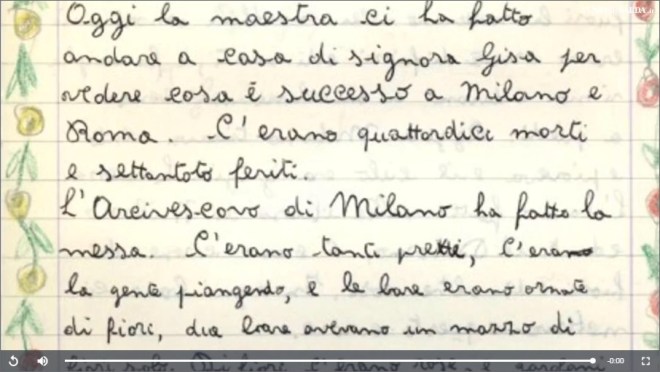 Oggi la maestra ci ha fatto
andare a casa di signora Gisa per
vedere cosa è successo a Milano e
Roma. C'erano quattordici morti
e settantoto feriti.
L'Arcivescovo di Milano ha fatto la
messa. C'erano tanti preti, C'erano
la gente piangendo, e le bare erano ornate
di fiori, due bare avevano un mazzo di
fiori solo. Di fiori c'erano rose, e
-0:00